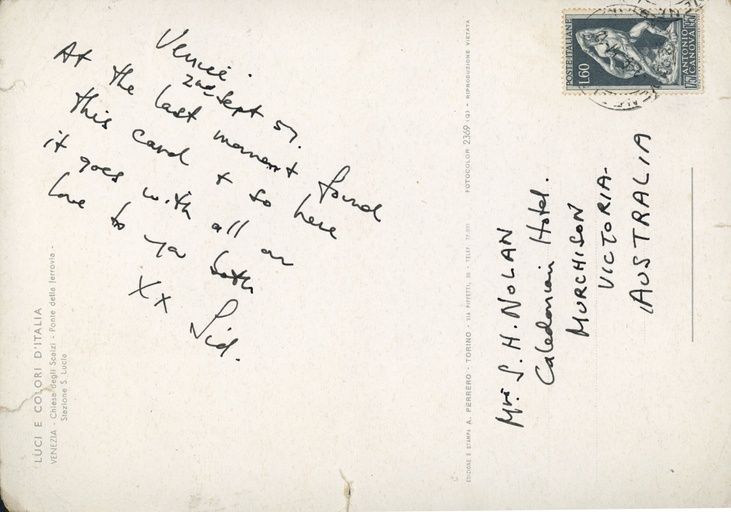 Venice.
2nd Sept 57.
At the last moment found
this card & so here
it goes with all our
love to you both
XX Sid.
Mrs S. H. NOLAN
Caledonian Hotel.
MURCHISON
VICTORIA-
AUSTRALIA
POSTE ITALIANE
L.60
ANTONIO
CANOVA
LUCI E COLORI D'ITALIA
VENEZIA - Chiesa degli Scalzi - Ponte della ferrovia -
Stazione S. Lucia
EDIZIONE E STAMPA A. PERRERO - TORINO - VIA TELEF.
FOTOCOLOR 2369 (G) - RIPRODUZIONE VIETATA